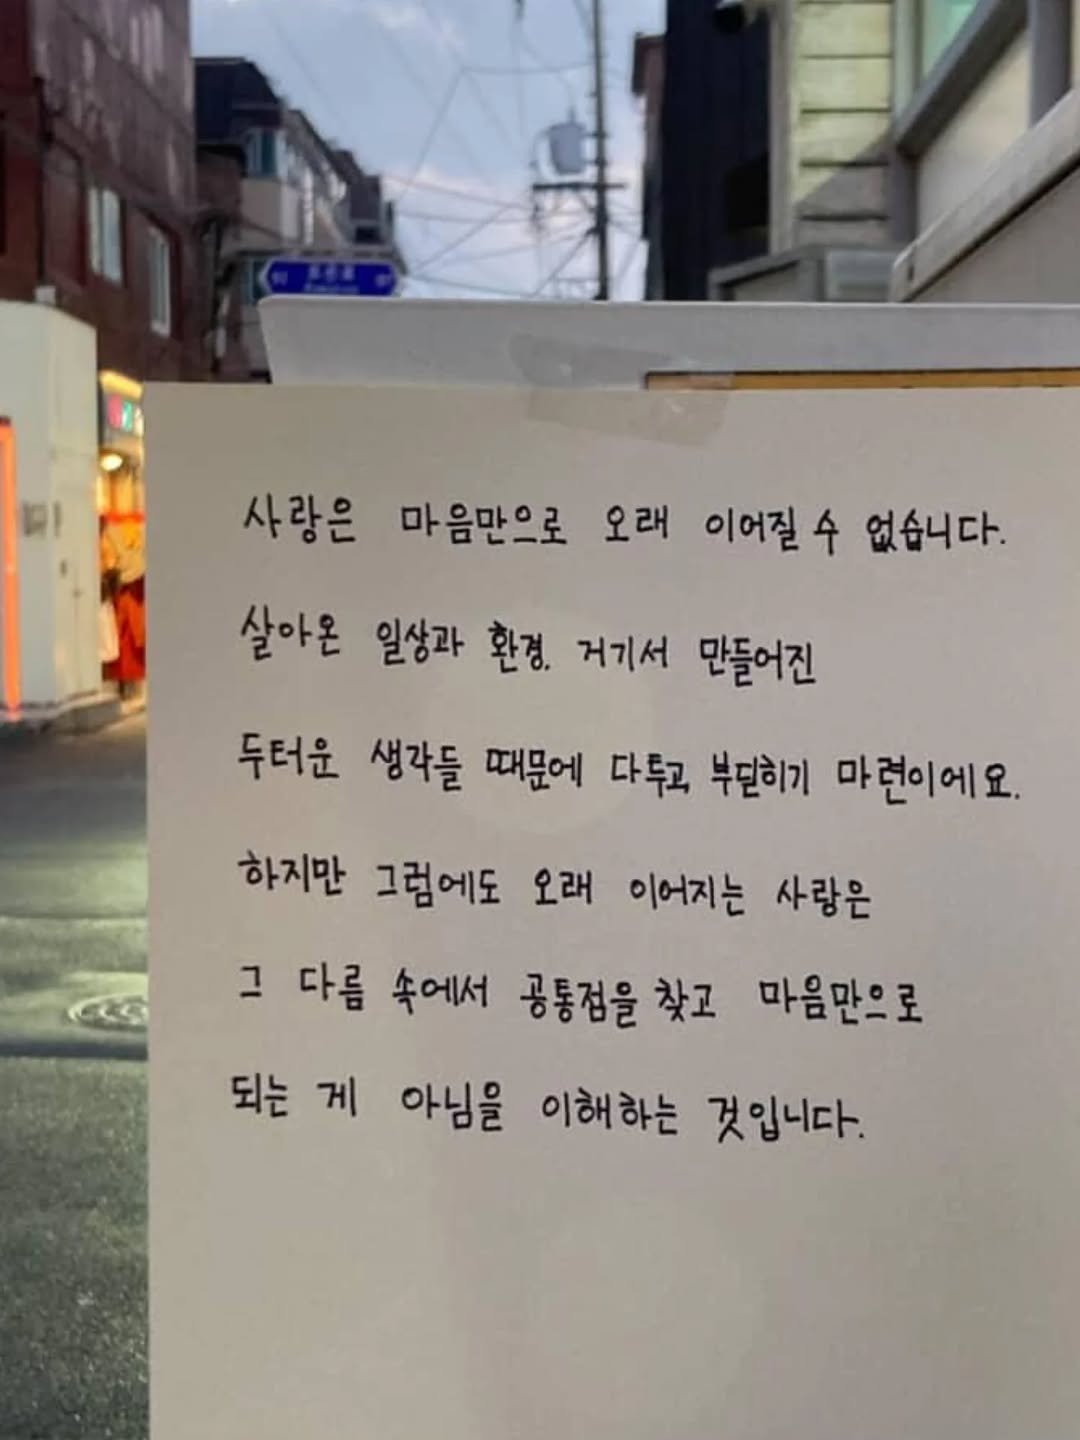 사랑은 마음만으로 오래 이어질 수 없습니다.
살아온 일상과 환경, 거기서 만들어진
두터운 생각들 때문에 다투고, 부딛히기 마련이에요.
하지만 그럼에도 오래 이어지는 사랑은
그 다름 속에서 공통점을 찾고 마음만으로
되는 게 아님을 이해하는 것입니다.